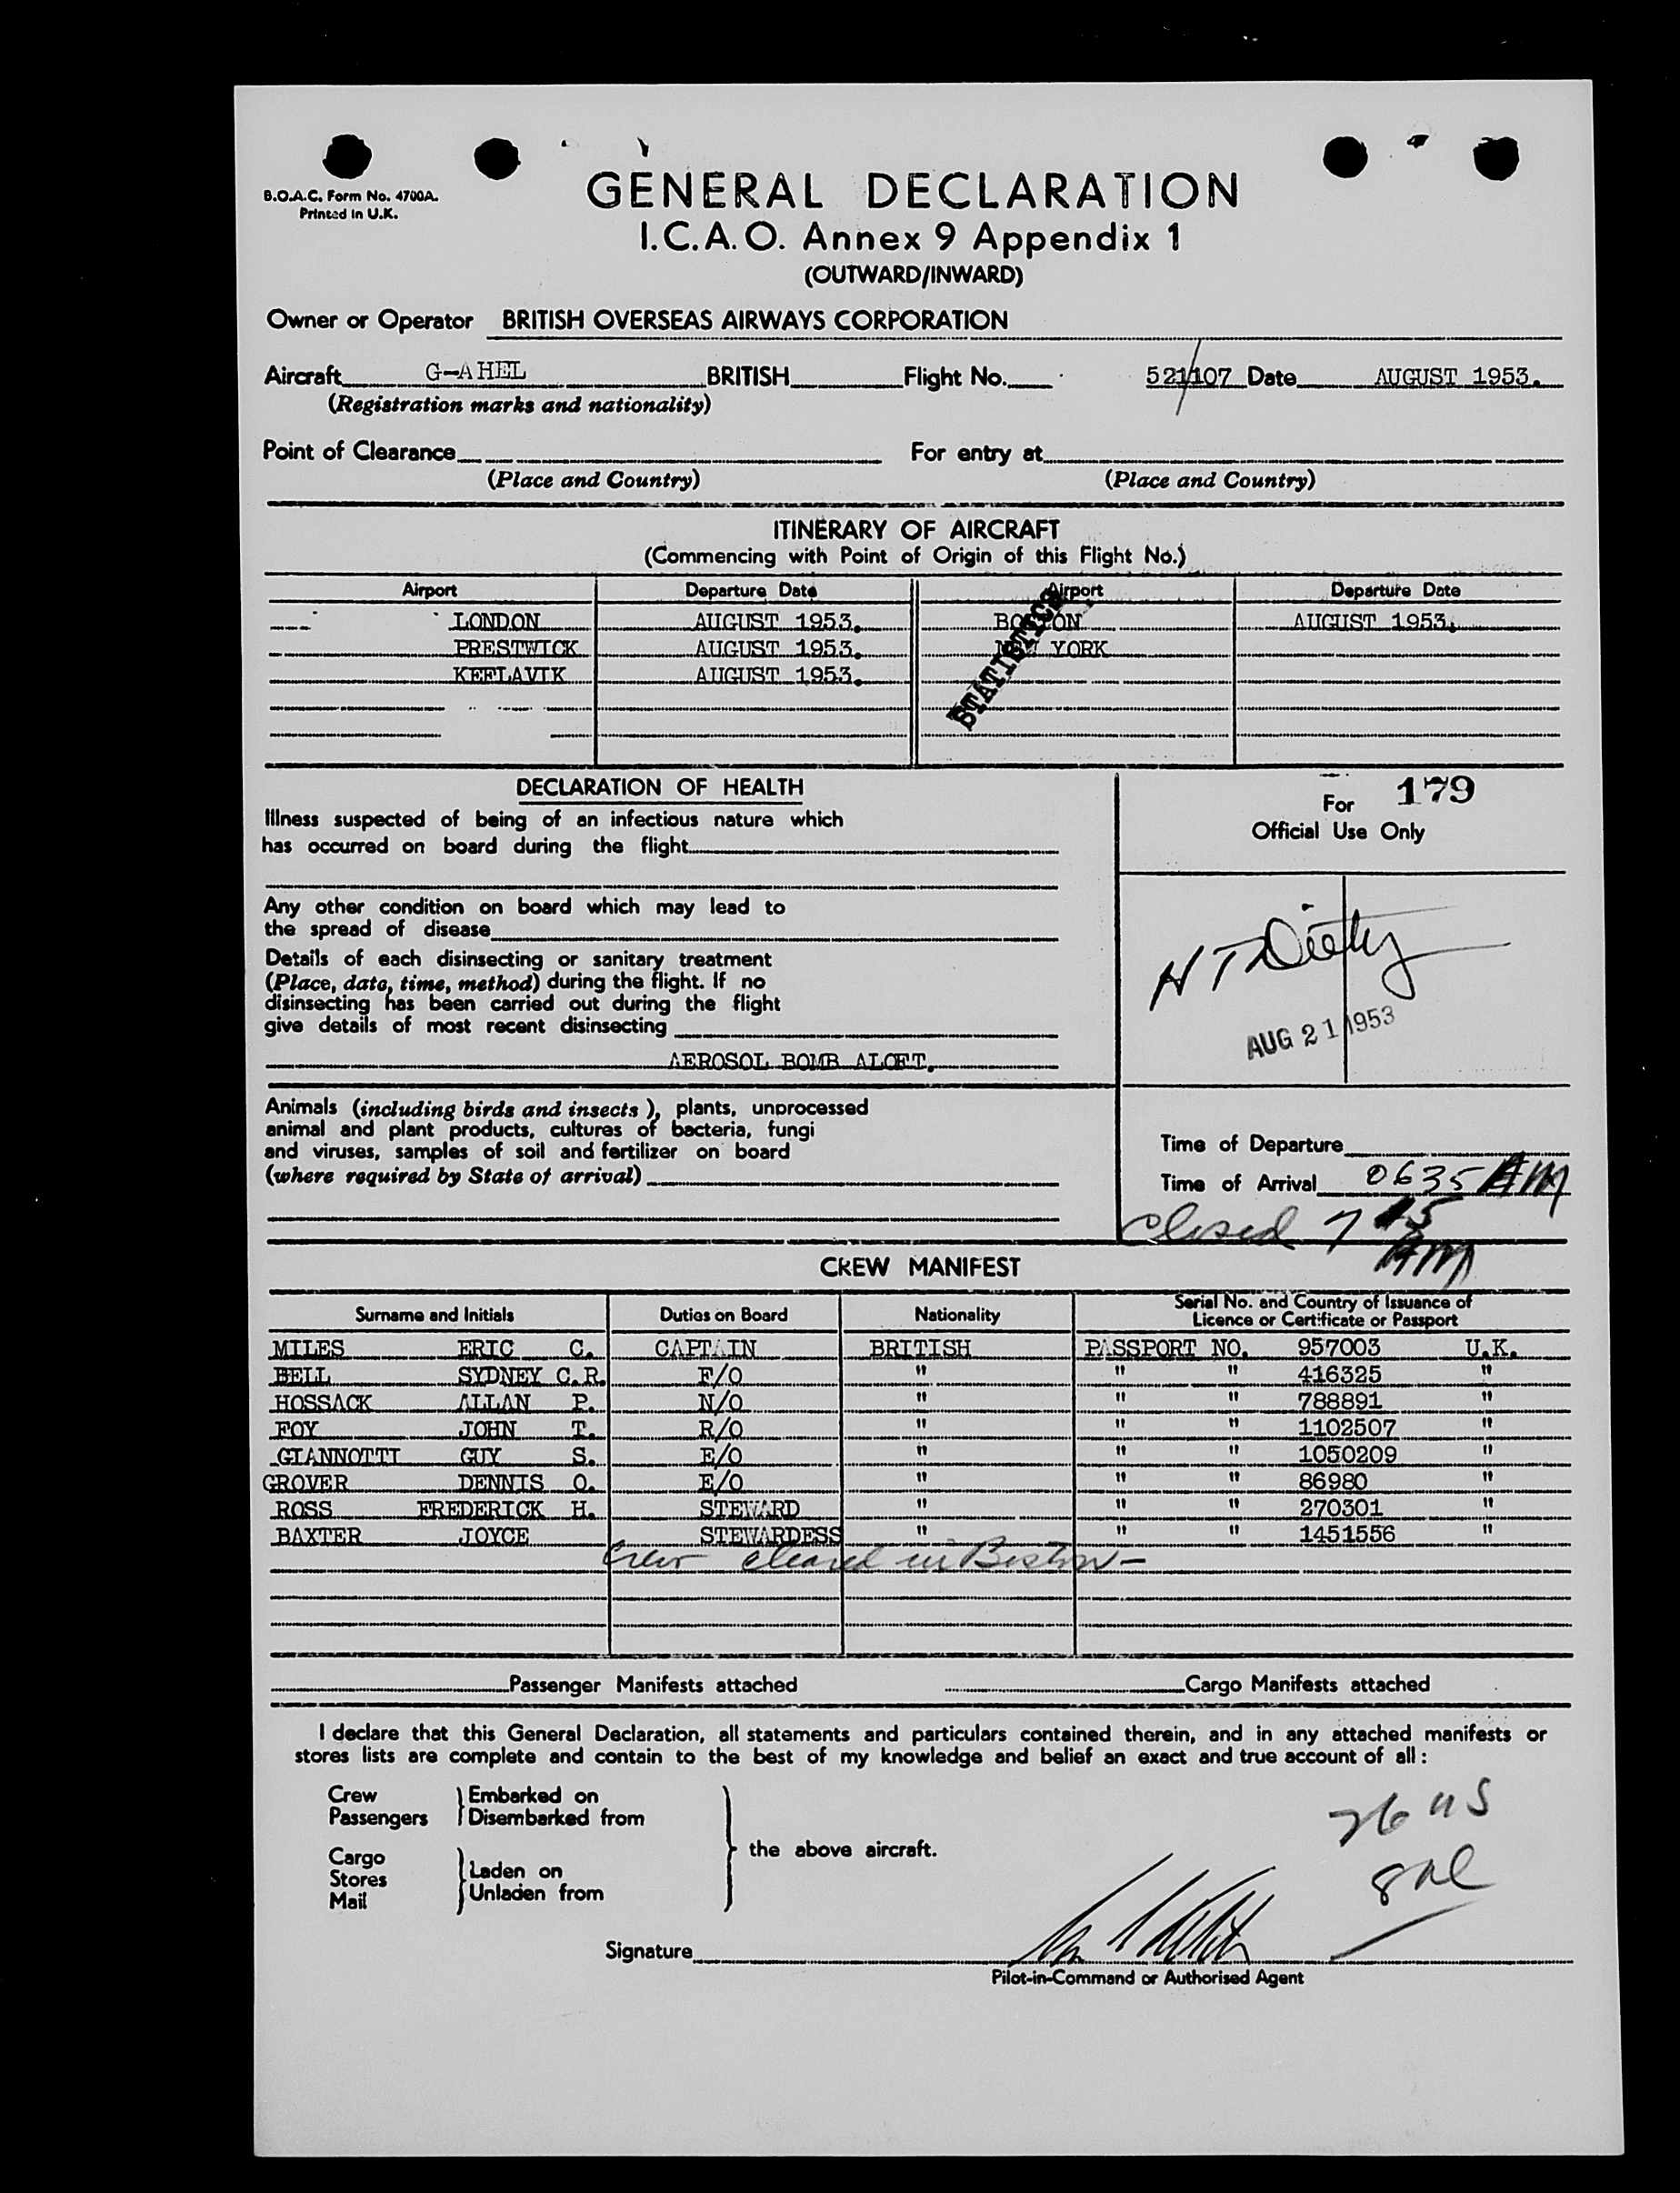 B.O.A.C. Form No. 4700A.
Printed in U.K.
GENERAL DECLARATION
I.C.A.O. Annex 9 Appendix 1
(OUTWARD/INWARD)
Owner or Operator BRITISH OVERSEAS AIRWAYS CORPORATION
Aircraft G-AHEL BRITISH Flight No. 521/107 Date AUGUST 1953.
(Registration marks and nationality)
Point of Clearance For entry at
(Place and Country) (Place and Country)
ITINERARY OF AIRCRAFT
(Commencing with Point of Origin of this Flight No.)
Airport Departure Date Airport Departure Date
LONDON AUGUST 1953. BOSTON AUGUST 1953.
PRESTWICK AUGUST 1953. NEW YORK
KEFLAVIK AUGUST 1953.
STATISTICS
DECLARATION OF HEALTH
For 179
Official Use Only
Illness suspected of being of an infectious nature which
has occurred on board during the flight
Any other condition on board which may lead to
the spread of disease
Details of each disinsecting or sanitary treatment
(Place, date, time, method) during the flight. If no
disinsecting has been carried out during the flight
give details of most recent disinsecting
AEROSOL BOMB ALOFT.
H T
AUG 21 1953
Animals (including birds and insects), plants, unprocessed
animal and plant products, cultures of bacteria, fungi
and viruses, samples of soil and fertilizer on board
(where required by State of arrival)
Time of Departure
Time of Arrival 0635 AM
Closed 7 15
AM
CREW MANIFEST
Surname and Initials Duties on Board Nationality Serial No. and Country of Issuance of
Licence or Certificate or Passport
MILES ERIC C. CAPTAIN BRITISH PASSPORT NO. 957003 U.K.
BELL SYDNEY C.R. F/O " " " 416325 "
HOSSACK ALLAN P. N/O " " " 788891 "
FOY JOHN T. R/O " " " 1102507 "
GIANNOTTI GUY S. E/O " " " 1050209 "
GROVER DENNIS O. E/O " " " 86980 "
ROSS FREDERICK H. STEWARD " " " 270301 "
BAXTER JOYCE STEWARDESS " " " 1451556 "
Crew cleared in Boston -
Passenger Manifests attached Cargo Manifests attached
I declare that this General Declaration, all statements and particulars contained therein, and in any attached manifests or
stores lists are complete and contain to the best of my knowledge and belief an exact and true account of all :
Crew Embarked on
Passengers Disembarked from
the above aircraft.
Cargo
Stores Laden on
Mail Unladen from
Signature
Pilot-in-Command or Authorised Agent